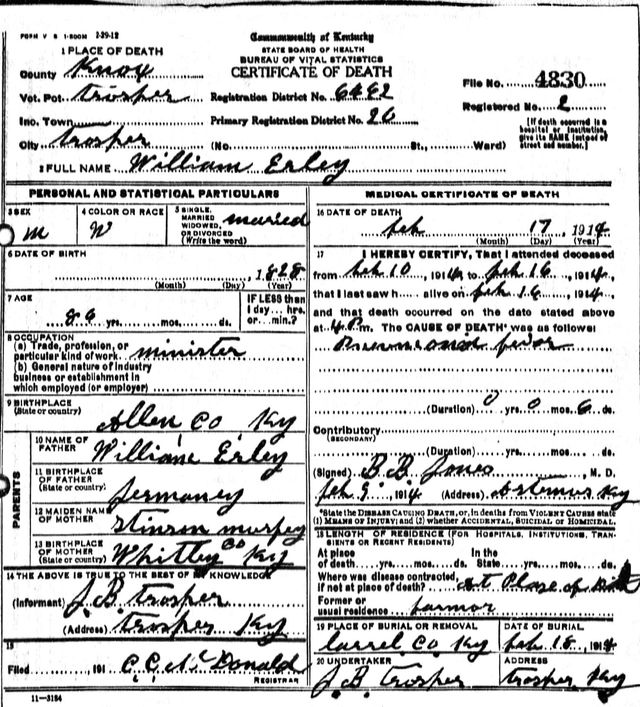 FORM V S 1-500M 1-29-12
Commonwealth of Kentucky
STATE BOARD OF HEALTH
BUREAU OF VITAL STATISTICS
CERTIFICATE OF DEATH
1 PLACE OF DEATH
County Knox
Vot. Pct. trosper
Inc. Town
City trosper
Registration District No. 6462
Primary Registration District No. 26
(No. St., Ward)
File No. 4830
Registered No. 2
[If death occurred in a hospital or institution, give its NAME instead of street and number.]
2 FULL NAME William Erley
PERSONAL AND STATISTICAL PARTICULARS
3 SEX M
4 COLOR OR RACE W
5 SINGLE, MARRIED WIDOWED, OR DIVORCED (Write the word) married
6 DATE OF BIRTH
1828
(Month) (Day) (Year)
7 AGE
86 yrs. mos. ds.
IF LESS than 1 day... hrs. or... min.?
8 OCCUPATION
(a) Trade, profession, or particular kind of work minister
(b) General nature of industry
business or establishment in
which employed (or employer)
9 BIRTHPLACE
(State or country) Allen Co Ky
PARENTS
10 NAME OF FATHER William Erley
11 BIRTHPLACE OF FATHER
(State or country) Jermaney
12 MAIDEN NAME OF MOTHER Stinson murpey
13 BIRTHPLACE OF MOTHER
(State or country) Whitley Co Ky
14 THE ABOVE IS TRUE TO THE BEST OF MY KNOWLEDGE
(Informant) J. B. trosper
(Address) trosper Ky
15
Filed 191 C. C. Mc Donald
REGISTRAR
11-3184
MEDICAL CERTIFICATE OF DEATH
16 DATE OF DEATH
feb 17, 1914
(Month) (Day) (Year)
17 I HEREBY CERTIFY, That I attended deceased
from feb 10, 1914, to feb 16, 1914,
that I last saw h alive on feb 16, 1914,
and that death occurred on the date stated above
at 4 P m. The CAUSE OF DEATH* was as follows:
fevor
(Duration) 0 yrs. 0 mos. 6 ds.
Contributory
(SECONDARY)
(Duration) yrs. mos. ds.
(Signed) B. B. Jones, M. D.
feb 9, 1914 (Address) Artemus Ky
*State the DISEASE CAUSING DEATH, or, in deaths from VIOLENT CAUSES state
(1) MEANS OF INJURY; and (2) whether ACCIDENTAL, SUICIDAL or HOMICIDAL.
18 LENGTH OF RESIDENCE (FOR HOSPITALS, INSTITUTIONS, TRANSIENTS OR RECENT RESIDENTS)
At place of death yrs. mos. ds. In the State yrs. mos. ds.
Where was disease contracted,
if not at place of death? At Place of Death
Former or
usual residence farmor
19 PLACE OF BURIAL OR REMOVAL
laurel Co Ky
DATE OF BURIAL
feb 18, 1914
20 UNDERTAKER
J. B. trosper
ADDRESS
trosper Ky